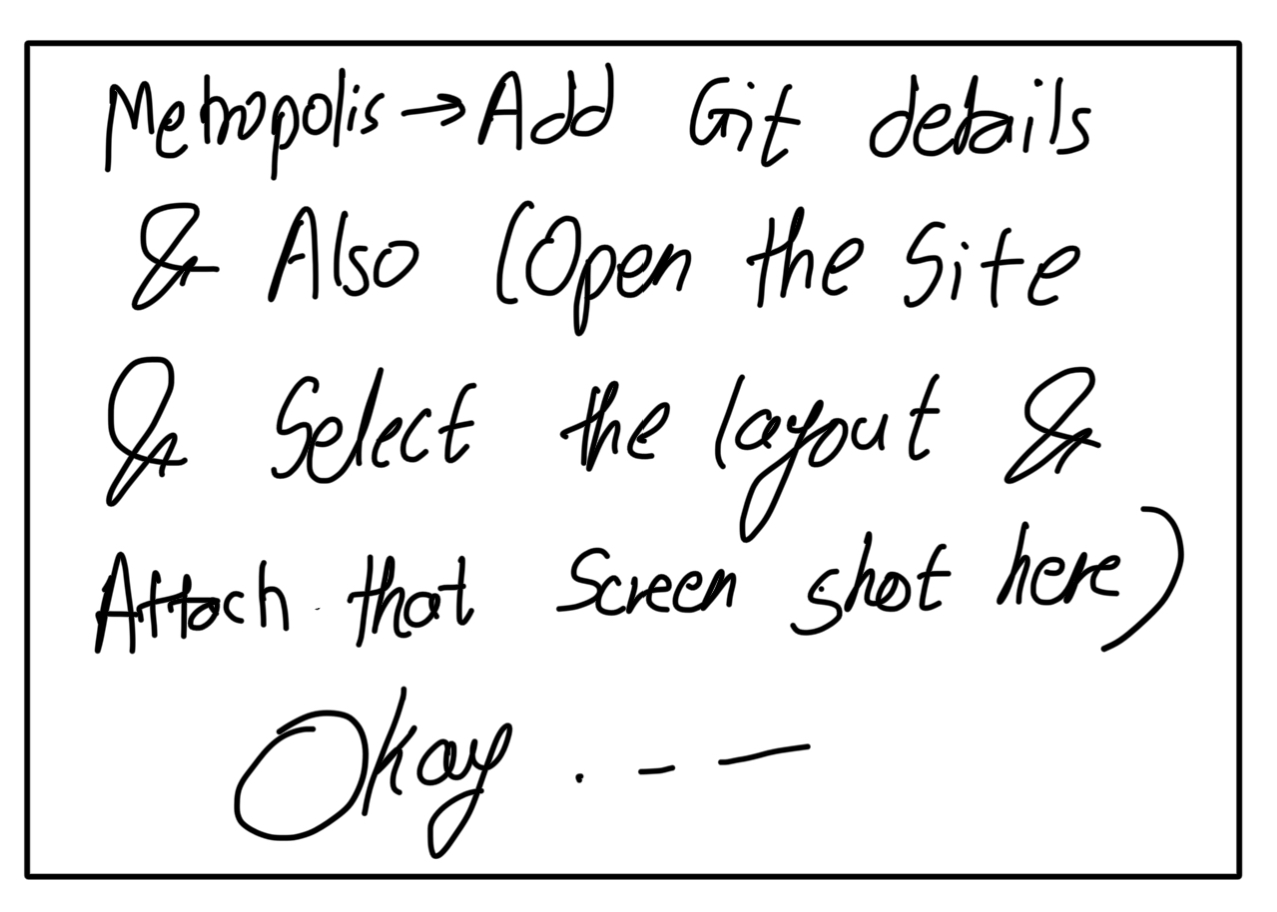 Metropolis → Add Git details
& Also (Open the Site
& Select the layout &
Attach that Screen shot here)
Okay . - —